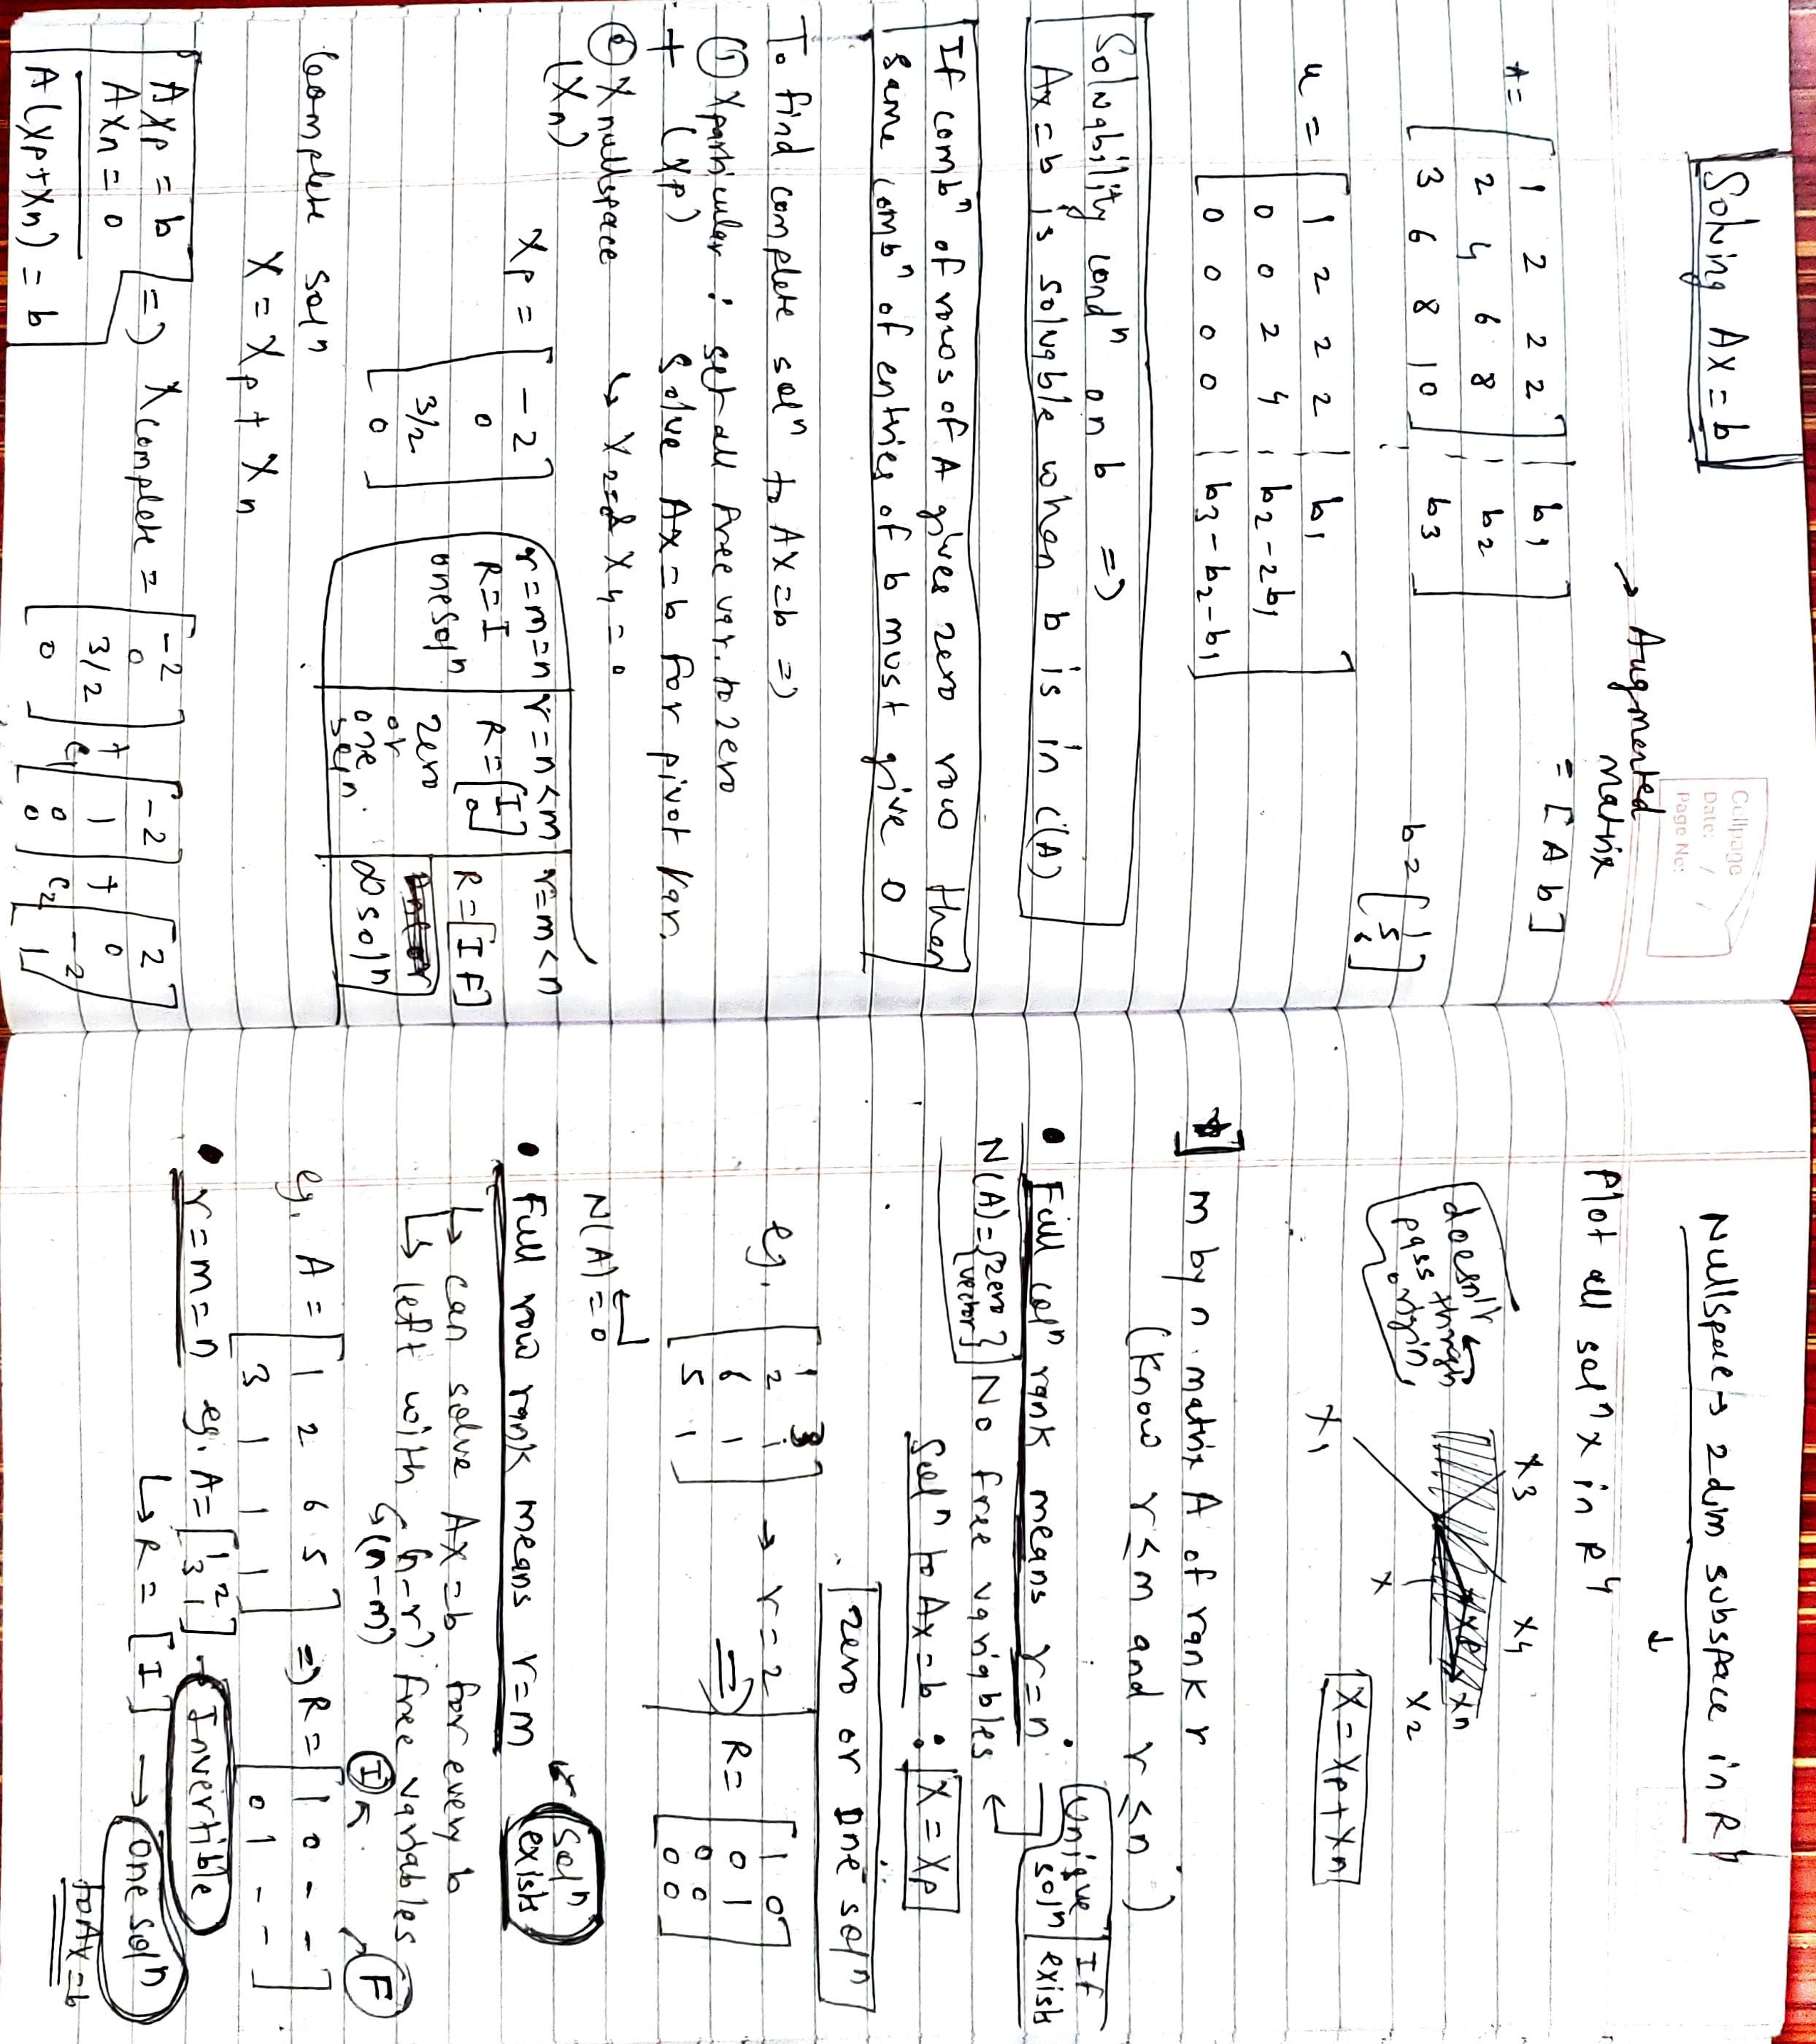 Solving Ax=b
Cullpage
Date: / /
Page No:
→ Augmented
Matrix
= [A b]
A = [ 1 2 2 2 | b1 ]
[ 2 4 6 8 | b2 ]
[ 3 6 8 10 | b3 ]
b = [ 1 5 6 ]
u = [ 1 2 2 2 | b1 ]
[ 0 0 2 4 | b2-2b1 ]
[ 0 0 0 0 | b3-b2-b1 ]
Solvability condⁿ on b =>
Ax=b is solvable when b is in C(A)
If combⁿ of rows of A gives zero row then
same combⁿ of entries of b must give 0
To find complete solⁿ to Ax=b =>
① Xparticular : set all free var. to zero
+ (Xp) Solve Ax=b for pivot Var.
② Xnullspace ↳ X2=& X4=0
(Xn)
Xp = [ -2 0 3/2 0 ]
r=m=n
R=I
one solⁿ
r=n<m
R=[ I 0 ]
zero
or
one
solⁿ
r=m<n
R=[I F]
∞ solⁿ
Complete solⁿ
X = Xp + Xn
AXp = b
AXn = 0
A(Xp+Xn) = b
=> Xcomplete = [ -2 0 3/2 0 ] + c1 [ -2 1 0 0 ] + c2 [ 2 0 -2 1 ]
Nullspace → 2 dim subspace in R⁴
↓
Plot all solⁿ x in R⁴
X3 X4
doesn't
pass through
origin
Xp Xn
X2
X
X1
X = Xp+Xn
m by n matrix A of rank r
(Know r≤m and r≤n)
• Full colⁿ rank means r=n
Unique solⁿ | If exists
N(A)={zero vector} No free variables
Solⁿ to Ax=b : X = Xp
zero or one solⁿ
eg. [ 1 3 ]
[ 2 1 ]
[ 6 1 ]
[ 5 1 ]
→ r=2
=> R = [ 1 0 ]
[ 0 1 ]
[ 0 0 ]
[ 0 0 ]
N(A)=0
• Full row rank means r=m
Solⁿ exists
↳ can solve Ax=b for every b
↳ left with (n-r) free variables
↳(n-m)
I F
eg. A = [ 1 2 6 5 ] => R = [ 1 0 - - ]
[ 3 1 1 1 ] [ 0 1 - - ]
• r=m=n eg. A=[ 1 2 3 1 ] → Invertible
↳ R = [I] → one solⁿ
to Ax=b